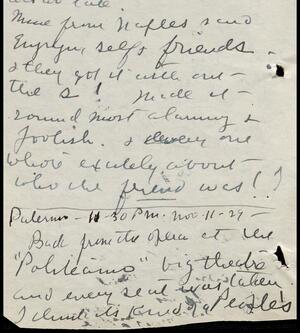 Mine from Naples said
Enjoying self & friends.
& they got it with out
the S! Made it
sound most alarming &
foolish. & every one
wrote exactly about
who the friend was!!
Palermo - 11-30 P.M. Nov-11-29-
Back from the opera at the
"Politeamo" big theatre
and every seat was taken
I think its kind of a People's